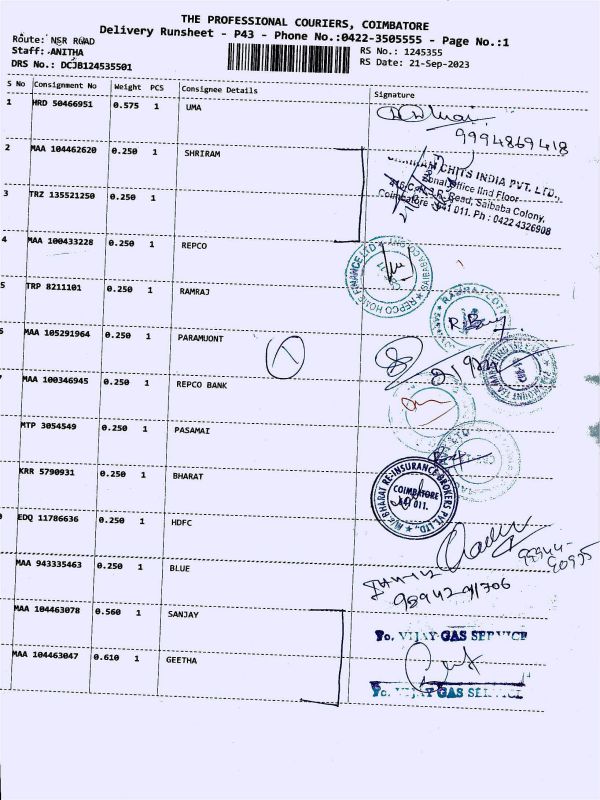 THE PROFESSIONAL COURIERS, COIMBATORE
Delivery Runsheet - P43 - Phone No.:0422-3505555 - Page No.:1
Route: NSR ROAD
Staff: ANITHA
RS No.: 1245355
DRS No.: DCJB124535501
RS Date: 21-Sep-2023
S No Consignment No Weight PCS Consignee Details Signature
1 HRD 50466951 0.575 1 UMA
9994869418
2 MAA 104462620 0.250 1 SHRIRAM
CHITS INDIA PVT. LTD.,
Zonal Office IInd Floor
Road, Saibaba Colony,
Coimbatore - 641 011. Ph : 0422 4326908
3 TRZ 135521250 0.250 1
4 MAA 100433228 0.250 1 REPCO
REPCO HOME FINANCE LTD
5 TRP 8211101 0.250 1 RAMRAJ
MAA 105291964 0.250 1 PARAMUONT
MAA 100346945 0.250 1 REPCO BANK
MTP 3054549 0.250 1 PASAMAI
KRR 5790931 0.250 1 BHARAT
BHARAT RE-INSURANCE BROKERS PVT. LTD.,
COIMBATORE
641 011.
EDQ 11786636 0.250 1 HDFC
MAA 943335463 0.250 1 BLUE
MAA 104463078 0.560 1 SANJAY
VIJAY GAS SERVICE
MAA 104463047 0.610 1 GEETHA
VIJAY GAS SERVICE